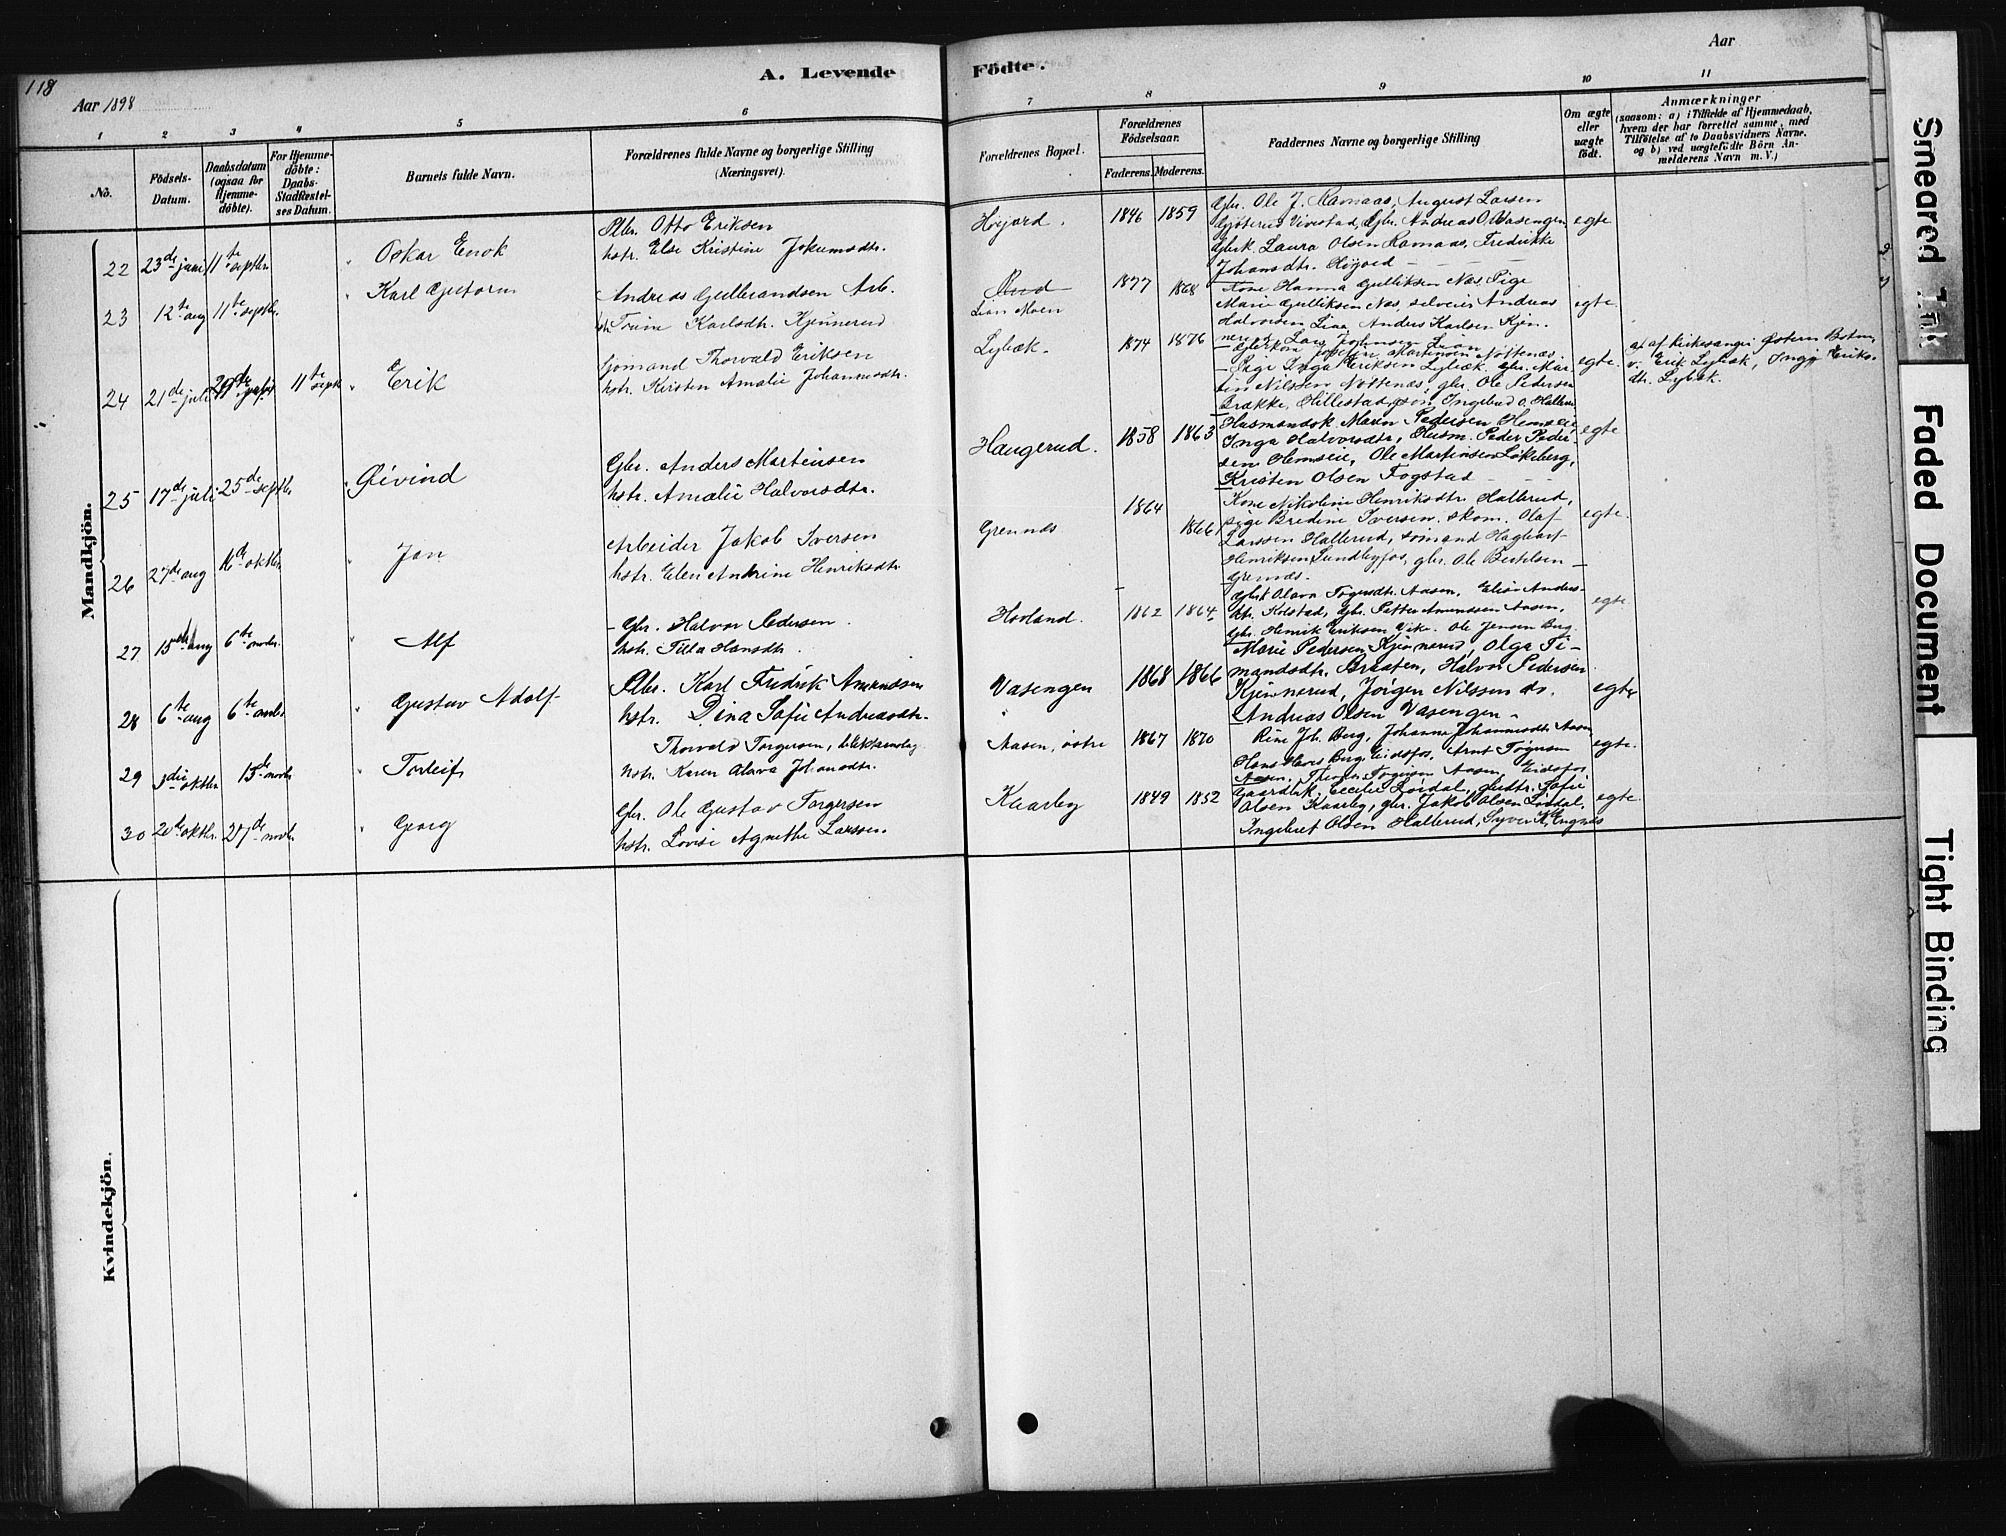 118
A. Levende Födte.
Aar
Aar 1898
1 2 3 4 5 6 7 8 9 10 11
No.
Födsels-
Datum.
Daabsdatum
(ogsaa for
Hjemme-
döbte).
For Hjemme-
döbte:
Daabs-
Stadfæstel-
ses Datum.
Barnets fulde Navn.
Forældrenes fulde Navne og borgerlige Stilling
(Næringsvei).
Forældrenes Bopæl.
Forældrenes
Födselsaar.
Faderens. Moderens.
Faddernes Navne og borgerlige Stilling
Om ægte
eller
uægte
födt.
Anmærkninger
(saasom: a) i Tilfælde af Hjemmedaab,
hvem der har forrettet samme, med
Tilföielse af to Daabsvidners Navne.
og b) ved uægtefödte Börn An-
melderens Navn m. V.)
Mandkjön.
22 23de juni 11te septbr. Oskar Enok
Gbr. Otto Eriksen
hstr. Else Kristine Jokumsdtr.
Høijord. 1846 1859
Gbr. Ole J. Ramaas, August Larsen
Vivestad, Gbr. Andreas O. Vasengen
Gbrk. Laura Olsen Ramaas, Fredrikke
Johansdtr. Høijord
egte
23 12te aug 11te septbr. Karl Gustorm
Andreas Gulbrandsen Arb.
Karlsdtr. Kjønnerud
Lian Moen 1877 1868
Kone Hanna Gulliksen Næs, Pige
Marie Gulliksen Næs, selveier Andreas
Halvorsen Liaa, Anders Karlsen Kjøn-
nerud, Lars Johansen Lian
egte.
24 21de juli 11te septbr Erik
Sjømand Thorvald Eriksen
hstr. Kirsten Amalie Johannesdtr.
Lybæk. 1874 1876
Martinsen Nøttenæs,
Pige Inga Eriksen Lybæk. Gbr. Mar-
tin Nilssen Nøttenæs, gbr. Ole Pedersen
Brække, Hillestad, Ingebrd O. Hallerud
egte.
af kirkesanger Østern Botne
v. Erik Lybæk, Inga Eriks-
dtr. Lybæk.
25 17de juli 25de septbr Øivind
Gbr. Anders Martinsen
hstr. Amalie Halvorsdtr.
Haugerud. 1858 1863
Husmandsk. Maren Pedersen Hemseie,
Inga Halvorsdtr, Husm. Peder Peder-
sen Hemseie, Ole Martinsen Løkeberg,
Kristen Olsen Fogstad
egte
26 27de aug 16de oktbr Jon
Arbeider Jakob Iversen
hstr. Elen Andrine Henriksdtr
Grennes 1864 1866
Kone Nikoline Henriksdtr Hallerud,
pige Bredine Iversen, skom. Olaf
Larssen Hallerud, sømand Hagbart
Henriksen Sundbyfos, gbr. Ole Bertelsen
Grennes.
egte.
27 15de aug 6te novbr. Alf
Gbr. Halvor Pedersen
hstr. Tilla Hansdtr.
Hovland. 1862 1864
Gbrk Olava Torgersdtr. Aasen, Elise Anders-
dtr. Kolstad, Gbr. Petter Amundsen Aasen,
Gbr. Henrik Eriksen Vike. Ole Jensen Berg.
egte
28 6te aug 6te novbr Gustav Adolf
Gbr. Karl Fredrik Amundsen
hstr. Dina Sofie Andreasdtr.
Vasengen 1868 1866
Marie Pedersen Kjønnerud, Olga Ti-
mandsdtr. Braaten, Halvor Pedersen
Kjønnerud, Jørgen Nilssen ds.
Andreas Olsen Vasengen
egte
29 3die oktbr 13de novbr Torleif
Thorvald Torgersen,
hstr. Karen Olava Johansdtr.
Aasen, østre 1867 1870
Rine Joh. Berg, Johanne Johannesdtr. Aasen
Hans Berg Eidsfos, Arnt Torgersen
Aasen, Torgersen Aasen, Eidsfos
egte.
30 20de oktbr. 27de novbr Georg
Gbr. Ole Gustav Torgersen
hstr. Lovise Agnethe Larssen.
Kaarby 1849 1852
Gaardbk. Cecilie Lørdal, gbdtr. Sofie
Olsen Kaarby, gbr. Jakob Olsen Lørdal,
Ingebret Olsen Hallerud, Syver K. Engnæs
egte.
Kvindekjön.
Smeared Ink
Faded Document
Tight Binding